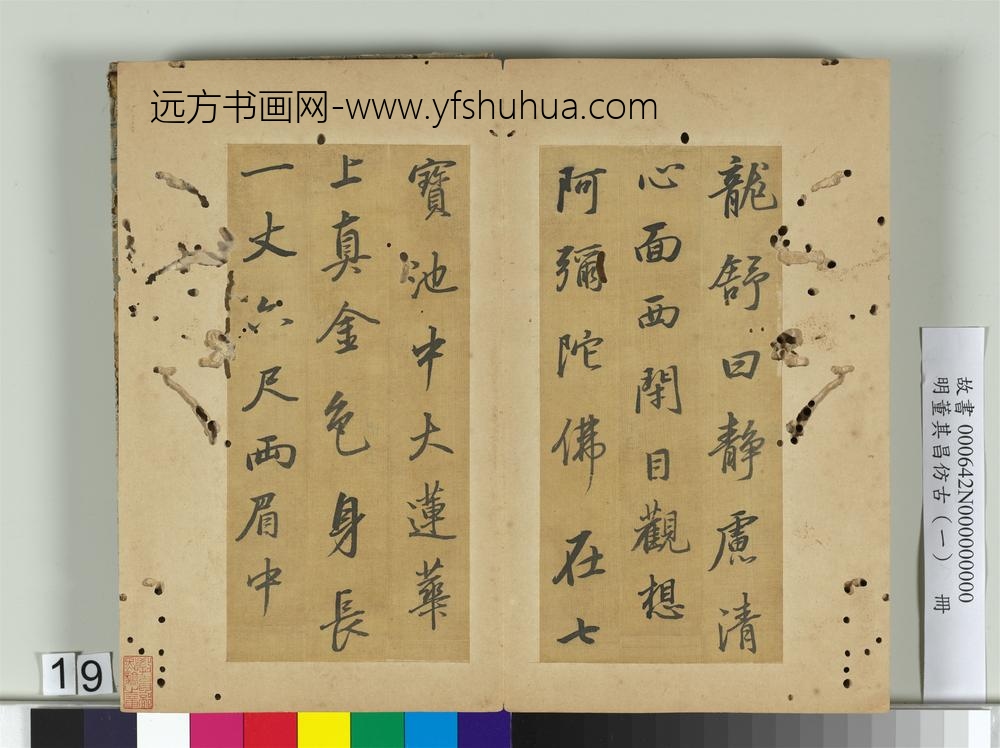 远方书画网-www.yfshuhua.com
龍舒曰靜慮清
心面西閑目觀想
阿彌陀佛在七
寶池中大蓮華
上真金色身長
一丈六尺兩眉中
故書 000642N000000000
明董其昌仿古（一） 冊
19